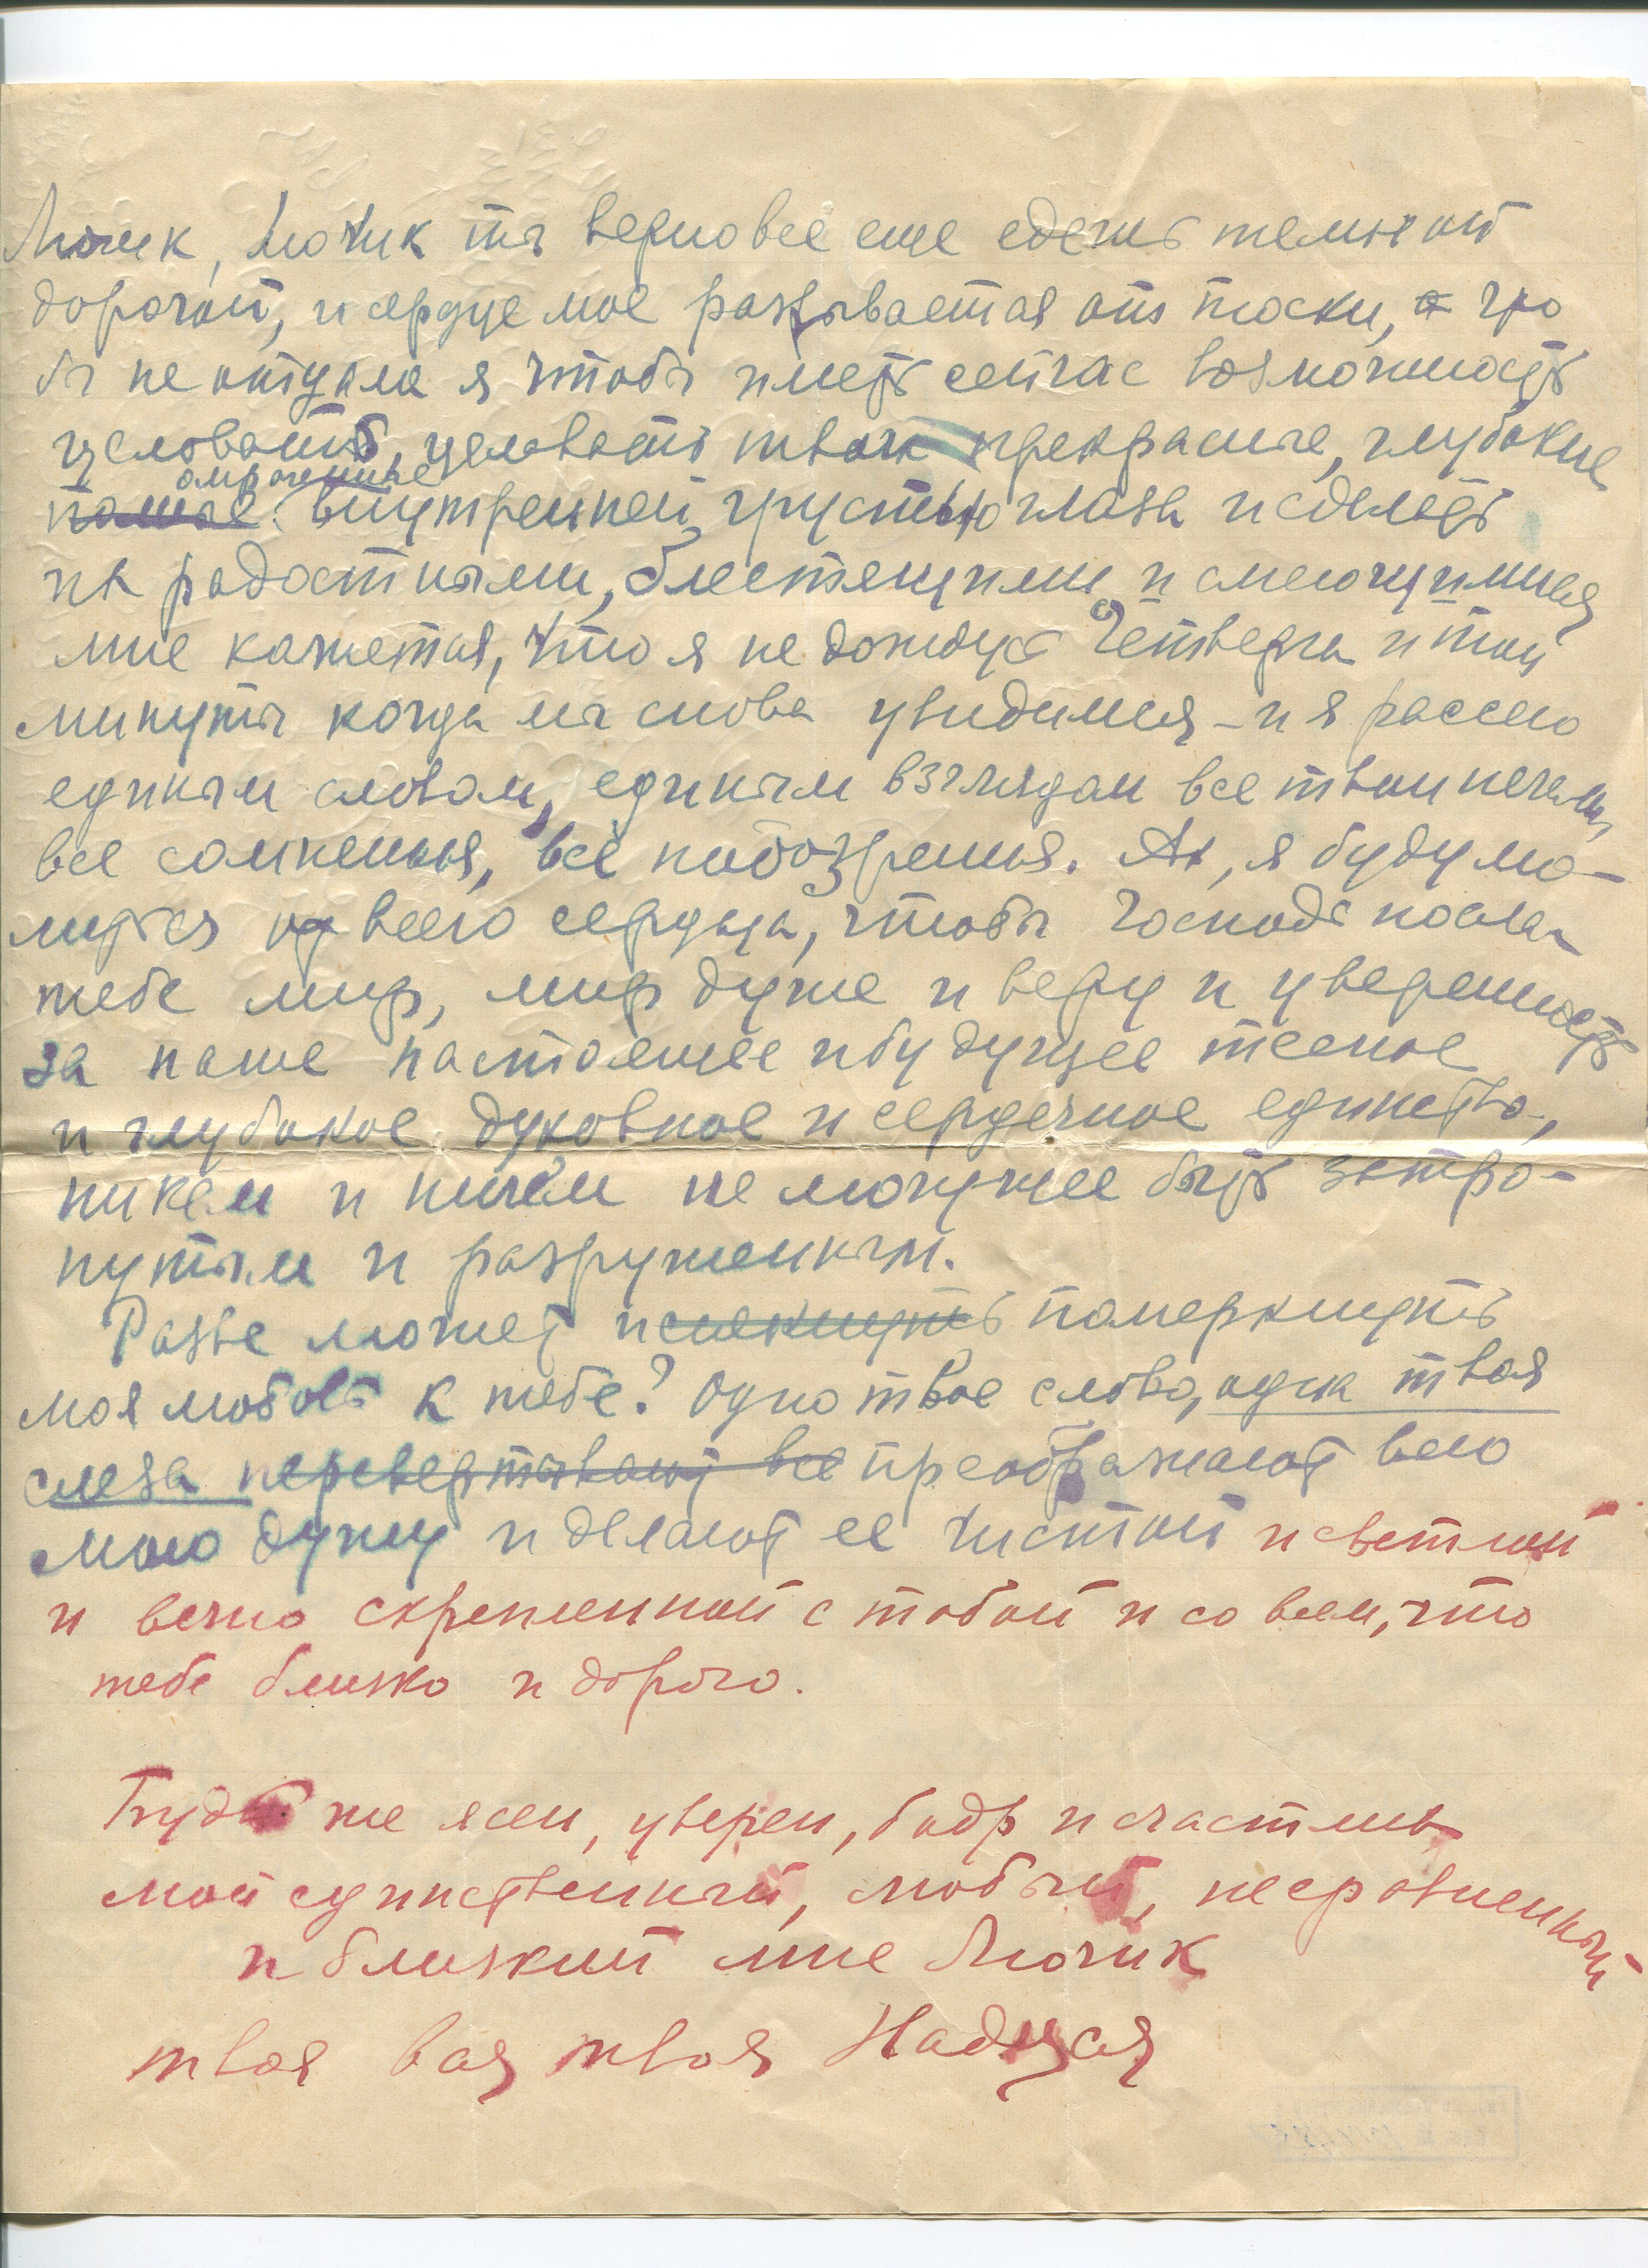 Лючик, Лючик ты верно все еще едешь темной
дорогой, и сердце мое разрывается от тоски, что
бы не отдала я чтобы иметь сейчас возможность
целовать, целовать твои прекрасные, глубокие
омраченные
внутренней грустью глаза и сделать
их радостными, блестящими и смеющимися
мне кажется, что я не дождусь Четверга и той
минуты когда мы снова увидимся – и я рассею
единым словом, единым взглядом все твои печали,
все сомненья, все подозренья. Ах, я буду мо-
литься от всего сердца, чтобы Господь послал
тебе мир, мир душе и веру и уверенность
за наше настоящее и будущее тесное
и глубокое духовное и сердечное единство,
никем и ничем не могущее быть затро-
нутым и разрушенным.
Разве может иссякнуть померкнуть
моя любовь к тебе? Одно твое слово, одна твоя
слеза перевертывают все преображают всю
мою душу и делают ее чистой и светлой
и вечно скрепленной с тобой и со всем, что
тебе близко и дорого.
Будь же ясен, уверен, бодр и счастлив
мой единственный, любый, несравненный
и близкий мне Лючик
твоя вся твоя Надюся